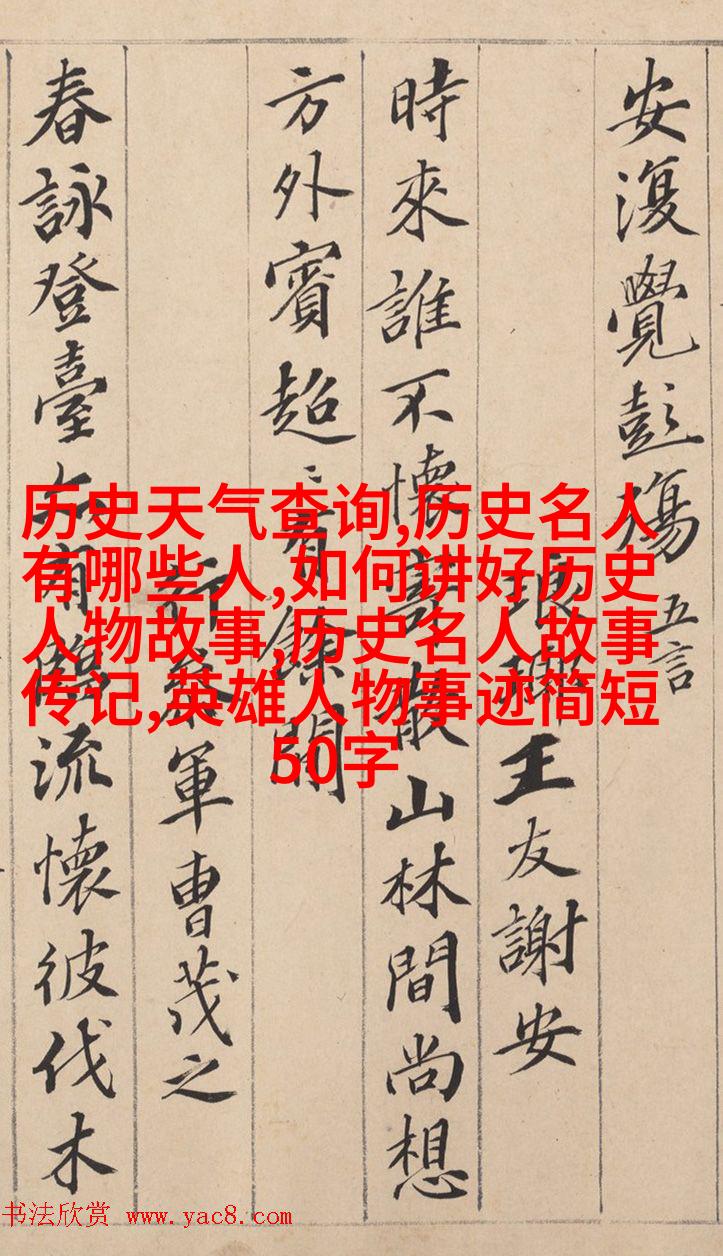 安復覺彭殤 五言
琅琊王友謝安
時來誰不懷寄散山林間尚想
方外賓超〻有餘閒
行參軍曹茂之
春詠登臺亦有臨流懷彼伐木
历史天气查询,历史名人
有哪些人,如何讲好历史
人物故事,历史名人故事
传记,英雄人物事迹简短
50字
书法欣赏 www.yac8.com